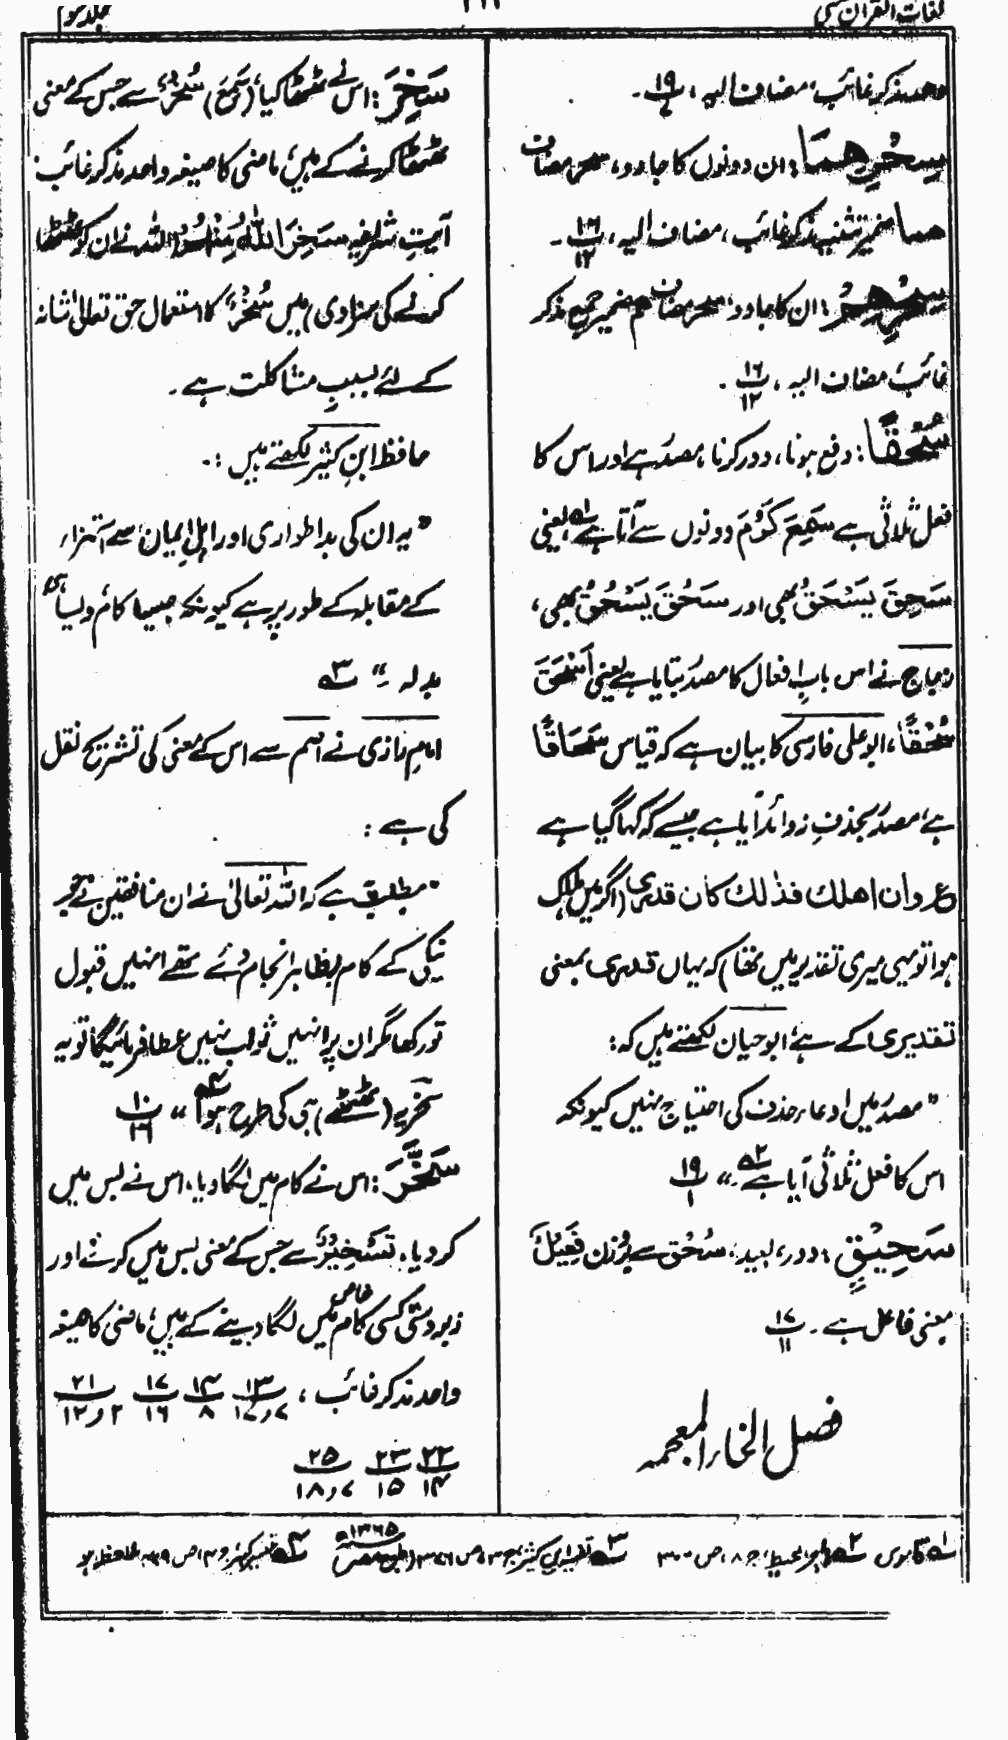 لغات القرآن
جلد سوم
واحد مذکر غائب، مضاف الیہ، ۱۹
سِحْرِهِمَا: ان دونوں کا جادو، سحر مضاف
هما ضمیر تثنیہ مذکر غائب، مضاف الیہ، ۱۶/۱۲ ۔
سِحْرِهِمْ: ان کا جادو، سحر مضاف هم ضمیر جمع مذکر
غائب مضاف الیہ، ۱۶/۱۲ ۔
سُحْقًا: دفع ہونا، دور کرنا، مصدر ہے اور اس کا
فعل ثلاثی ہے سَمِعَ کَرُمَ دونوں سے آتا ہے لہ، یعنی
سَحِقَ يَسْحَقُ بھی اور سَحُقَ يَسْحُقُ بھی،
زجاج نے اس باب افعال کا مصدر بتایا ہے یعنی اَسْحَقَ
سُحْقًا، ابو علی فارسی کا بیان ہے کہ قیاس سَحَاقًا
ہے، مصدر بحذفِ زوائد آیا ہے جیسے کہ کہا گیا ہے
ع وان اهلك فذالك كان قدری (اگر میں ہلاک
ہوا تو یہی میری تقدیر میں تھا) کہ یہاں قدری بمعنی
تقدیری کے ہے، ابو حیان لکھتے ہیں کہ:
"مصدر میں ادعاء حذف کی احتیاج نہیں کیونکہ
اس کا فعل ثلاثی آیا ہے ۲ھ۔" ۱۹/۱
سَحِيْقٍ: دور، بعید، سُحْق سے بروزن فَعِيْلٌ
معنی فاعل ہے ۔ ۱۷/۱۱
فصل الخاء المعجمہ
سَخِرَ: اس نے ٹھٹھا کیا، (سَمِعَ) سُخْرٌ سے جس کے معنی
ٹھٹھا کرنے کے ہیں، ماضی کا صیغہ واحد مذکر غائب،
آیت شریفہ سَخِرَ اللّٰهُ مِنْهُمْ (اللہ نے ان کو ٹھٹھا
کرنے کی سزا دی) میں سُخْرٌ کا استعمال حق تعالیٰ شانہ
کے لئے بسببِ مشاکلت ہے ۔
حافظ ابن کثیر لکھتے ہیں :۔
"یہ ان کی بداطواری اور اہلِ ایمان سے استہزاء
کے مقابلہ کے طور پر ہے کیونکہ جیسا کام ویسا ہی
بدلہ ۔" ۳ھ
امام رازی نے اصم سے اس کے معنی کی تشریح نقل
کی ہے :
"مطلب یہ ہے کہ اللہ تعالیٰ نے ان منافقین نے جو
نیکی کے کام بظاہر انجام دئے تھے انہیں قبول
تو رکھا مگر ان پر انہیں ثواب نہیں عطا فرمائیگا تو یہ
سخریہ (ٹھٹھے) ہی کی طرح ہوا ۴ھ" ۱۰/۱۶
سَخَّرَ: اس نے کام میں لگا دیا، اس نے بس میں
کر دیا، تَسْخِيْرٌ سے جس کے معنی بس میں کرنے اور
زبردستی کسی خاص کام میں لگا دینے کے ہیں، ماضی کا صیغہ
واحد مذکر غائب، ۱۳/۷و۱۷ ۱۴/۸ ۱۷/۱۶ ۲۱/۲و۱۲
۲۲/۱۴ ۲۳/۱۵ ۲۵/۷و۱۸
۱ھ قاموس ۲ھ البحر المحیط، ج ۸، ص ۳۰۰ ۳ھ تفسیر ابن کثیر ج ۲، ص ۳۷۶ (طبع مصر ۱۳۶۵ھ) ۴ھ تفسیر کبیر ج ۴، ص ۶۹۶ ملاحظہ ہو